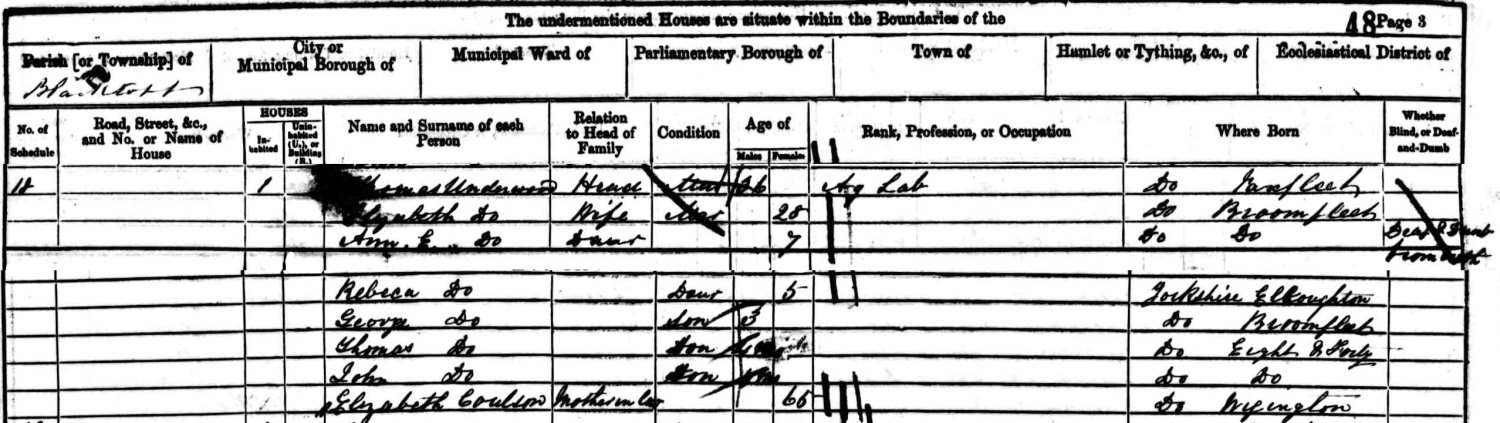 The undermentioned Houses are situate within the Boundaries of the
48 Page 3
Parish [or Township] of
City or Municipal Borough of
Municipal Ward of
Parliamentary Borough of
Town of
Hamlet or Tything, &c., of
Ecclesiastical District of
Blacktoft
No. of Schedule
Road, Street, &c., and No. or Name of House
HOUSES
In-habited
Unin-habited (U.), or Building (B.)
Name and Surname of each Person
Relation to Head of Family
Condition
Age of
Males
Females
Rank, Profession, or Occupation
Where Born
Whether Blind, or Deaf-and-Dumb
18 1 Thomas Underwood Head Mar 36 Ag Lab Do Faxfleet
Elizabeth Do Wife Mar 28 Do Broomfleet
Ann. E. Do Daur 7 Do Do Deaf & Dumb from Birth
Rebeca Do Daur 5 Yorkshire Elloughton
George Do Son 3 Do Broomfleet
Thomas Do Son Do Eight & Forty
John Do Son Do Do
Elizabeth Coulson Mother in law 65 Do Wigington